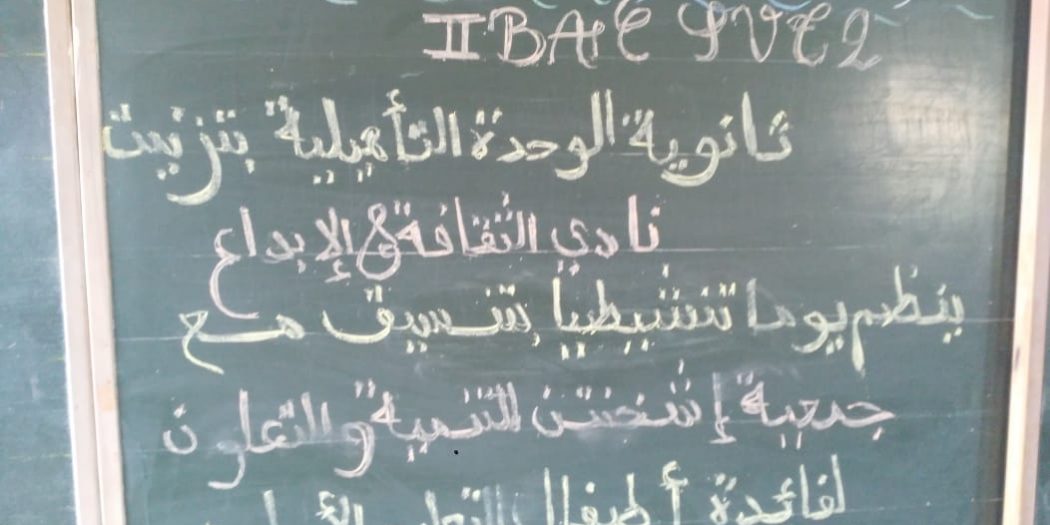 II BAC SVT2
ثانوية الوحدة التأهيلية بتزنيت
نادي الثقافة و الإبداع
ينظم يوما تنشيطيا بتنسيق مع
جمعية إشختن للتنمية والتعاون
لفائدة أطفال